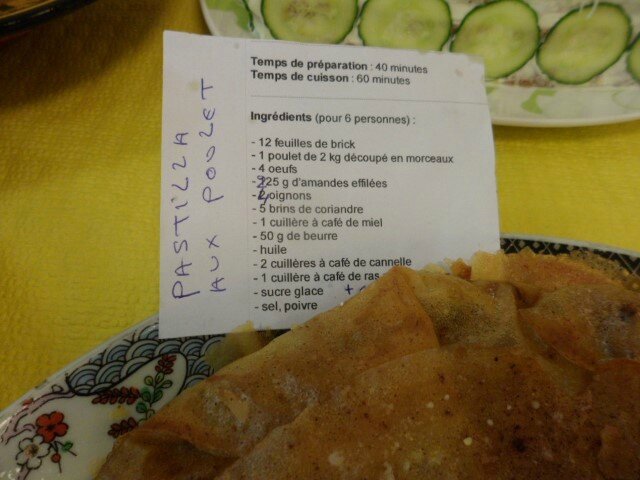 PASTILLA
AUX POULET
Temps de préparation : 40 minutes
Temps de cuisson : 60 minutes
Ingrédients (pour 6 personnes) :
- 12 feuilles de brick
- 1 poulet de 2 kg découpé en morceaux
- 4 oeufs
- 225 g d'amandes effilées
- oignons
- 5 brins de coriandre
- 1 cuillère à café de miel
- 50 g de beurre
- huile
- 2 cuillères à café de cannelle
- 1 cuillère à café de ras
- sucre glace +
- sel, poivre